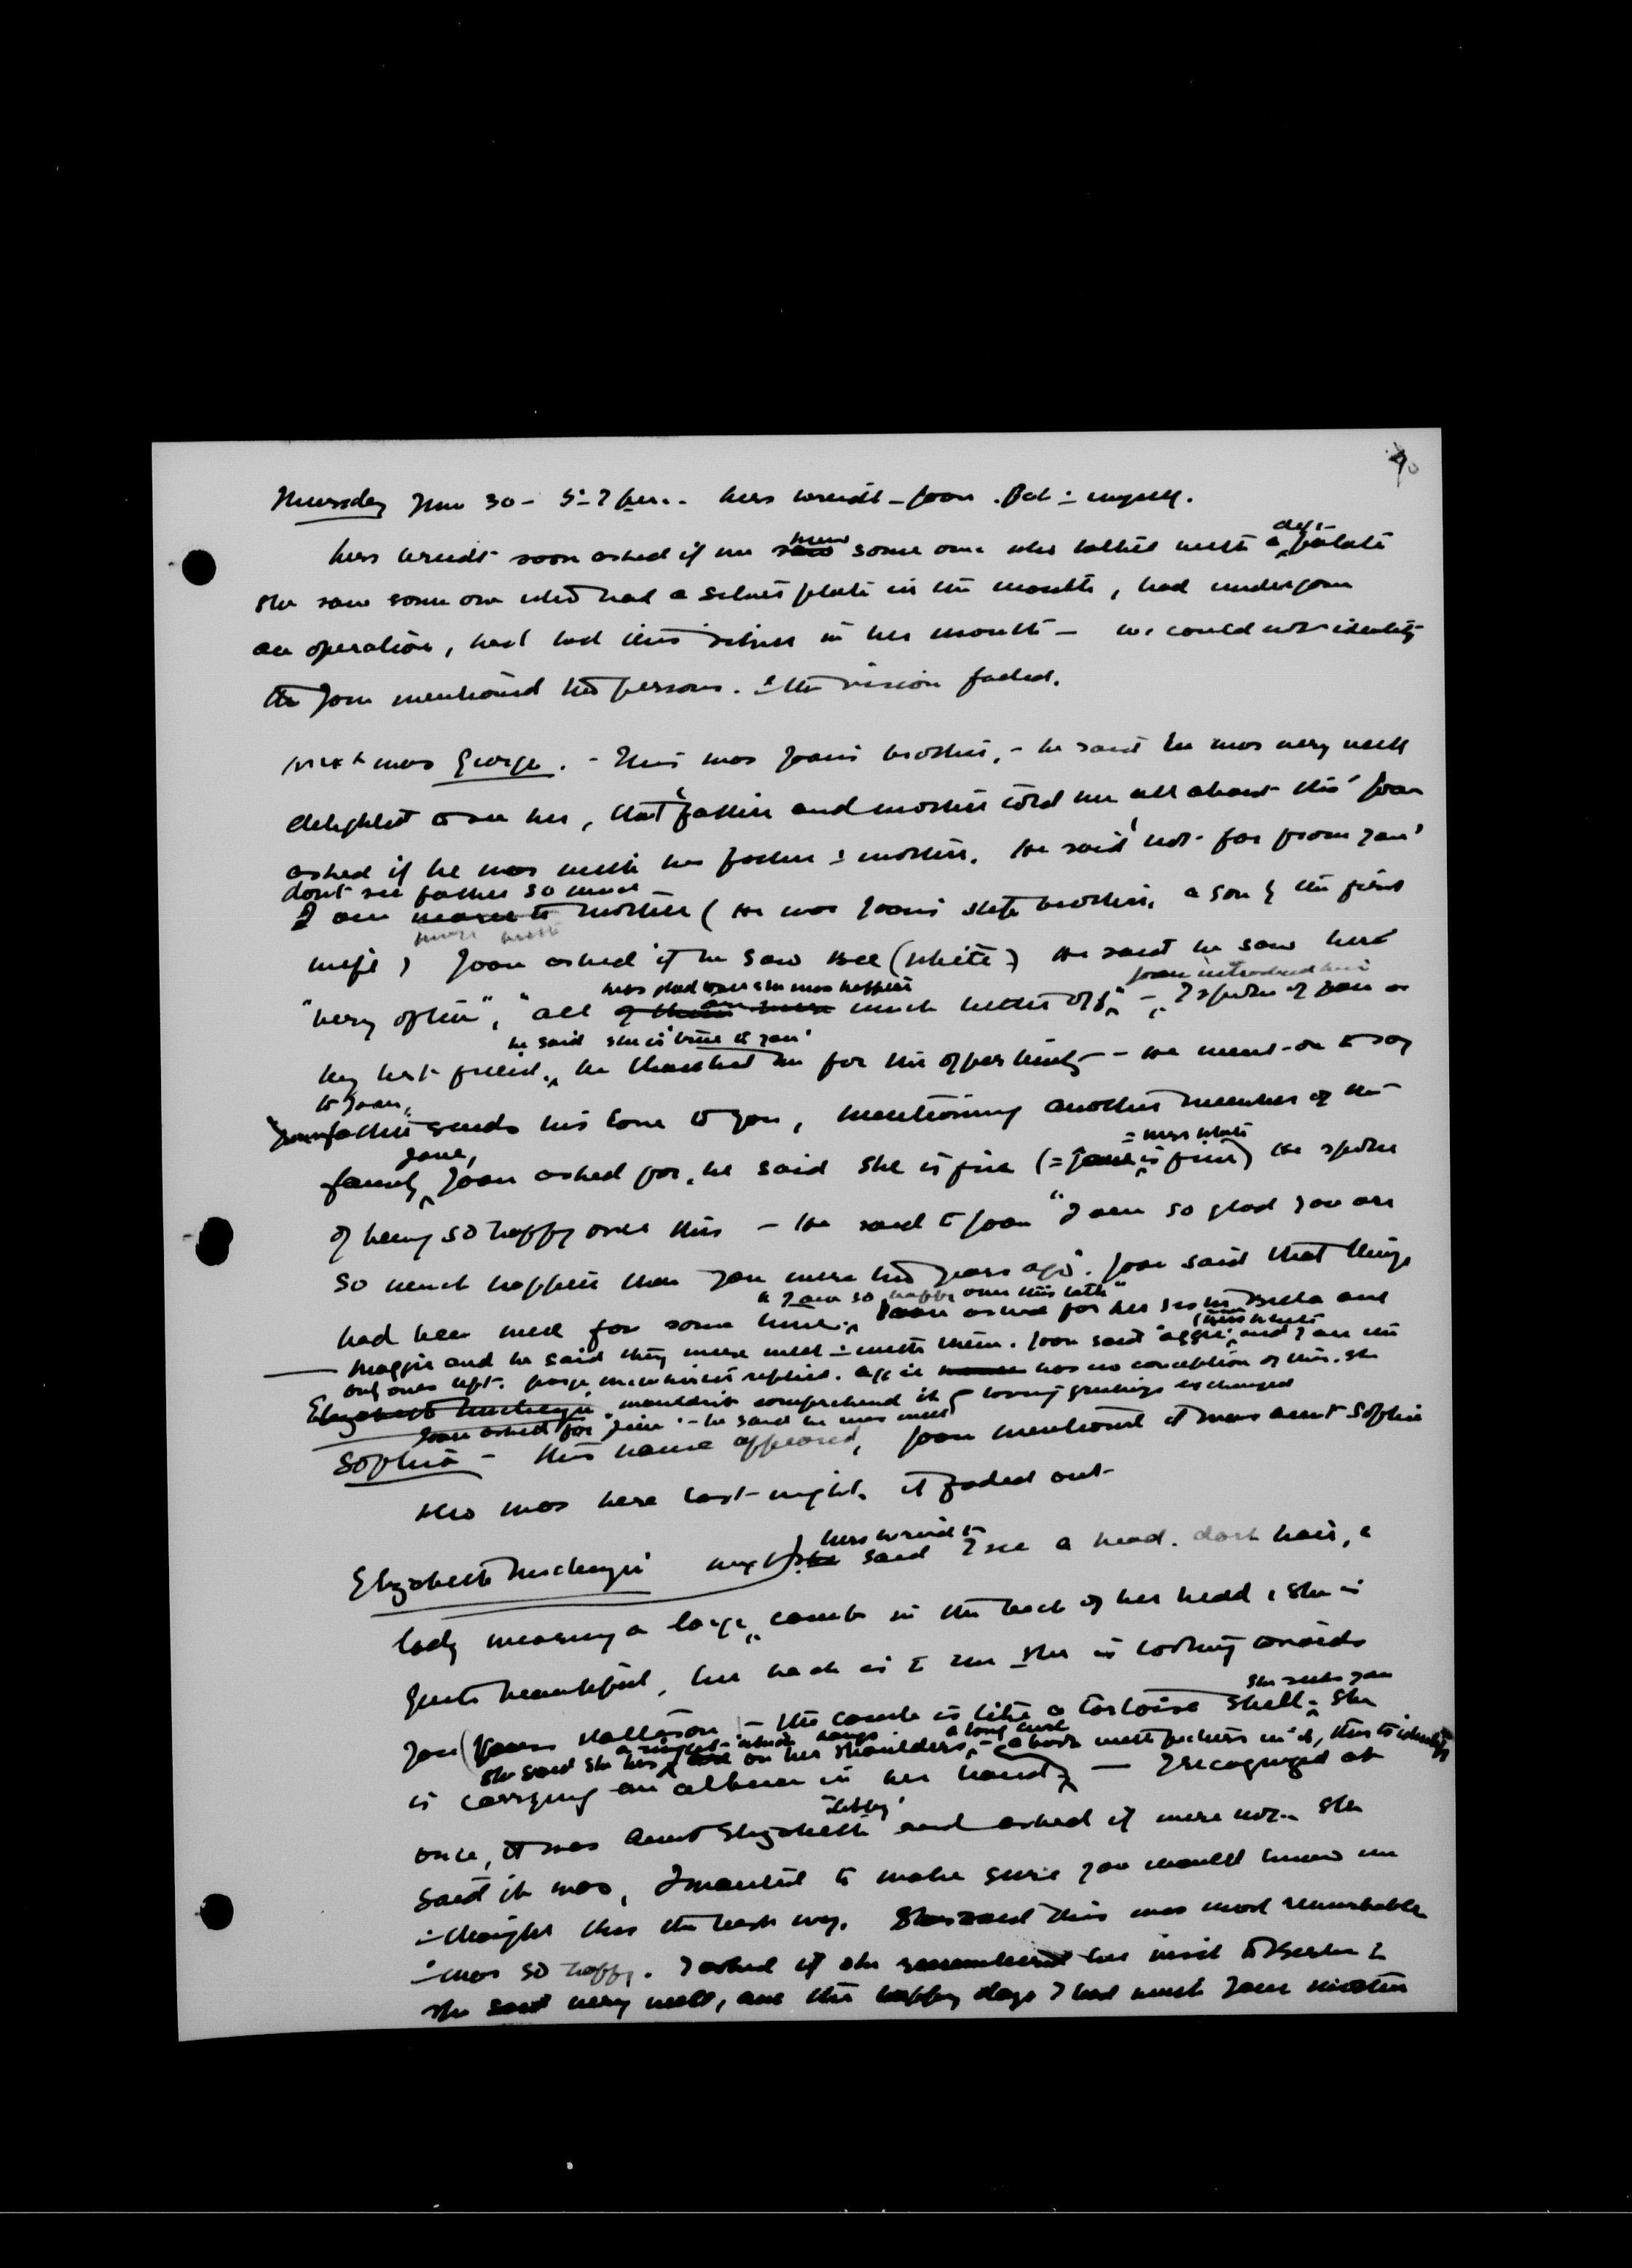 90
Thursday Nov 30 - 5-7 p.m. Mrs Wreidt - Joan. Pat & myself.
Mrs Wreidt soon asked if we knew some one who talked with a palate
She saw some one who had a silver plate in the mouth, had undergone
an operation, had had this silver in her mouth - we could not identify
Joan mentioned two persons. & the vision faded.
Next was George. - This was Joan's brother, - he said he was very well
delighted to see her, that 'father and mother told me all about this' Joan
asked if he was with her father & mother. He said 'not far from you'
dont see father so much
I am mother (He was Joan's step brother, a son of the first
more with
wife) Joan asked if he saw Bee (White) He said he saw her
was glad she was happier
Joan introduced him
"very often", "all much better off" - I spoke of Joan as
he said she is 'true to you'
my best friend. he thanked me for the opportunity - He went on to say
to Joan,
father sends his love to you, mentioning another member of the
Jane, = Mrs White
family Joan asked for, he said she is fine (= Jane is fine) He spoke
of being so happy over this - He said to Joan "I am so glad you are
so much happier than you were two years ago". Joan said that things
"I am so happy over this talk"
had been well for some time. Joan asked for her sister Bella and
Maggie and he said they were well & with them. Joan said "Aggie and I are the
only ones left. George replied. Aggie has no conception of this. She
Elizabeth wouldn't comprehend it - loving greetings exchanged
Joan asked for Jim - he said he was well
Sophia - this name appeared, Joan mentioned it was aunt Sophie
who was here last night. it faded out
Mrs Wreidt
Elizabeth next said I see a head. dark hair, a
lady wearing a large comb in the back of her head, she is
quite beautiful, her back is to me she is looking towards
she seeks you
you - the comb is like a tortoise shell. She
a long curl
she said she has on her shoulders, - a book with pictures in it, this to identify
is carrying an album in her hand - I recognized at
'Libby'
once, it was Aunt Elizabeth and asked if were not. She
said it was, I wanted to make sure you would know me
& thought this the best way. She said this was most remarkable
& was so happy. I asked if she remembered her visit to
She said very well, and the happy days I had with your mother